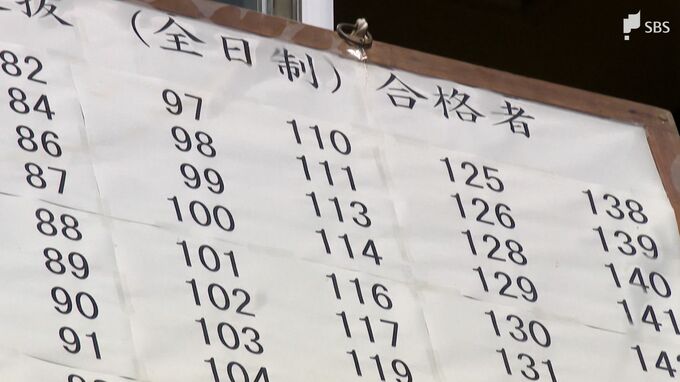 抜 (全日制) 合格者
SBS
82
84
86
87
88
89
90
91
97
98
99
100
101
102
103
104
110
111
113
114
116
117
119
125
126
128
129
130
131
138
139
140
141